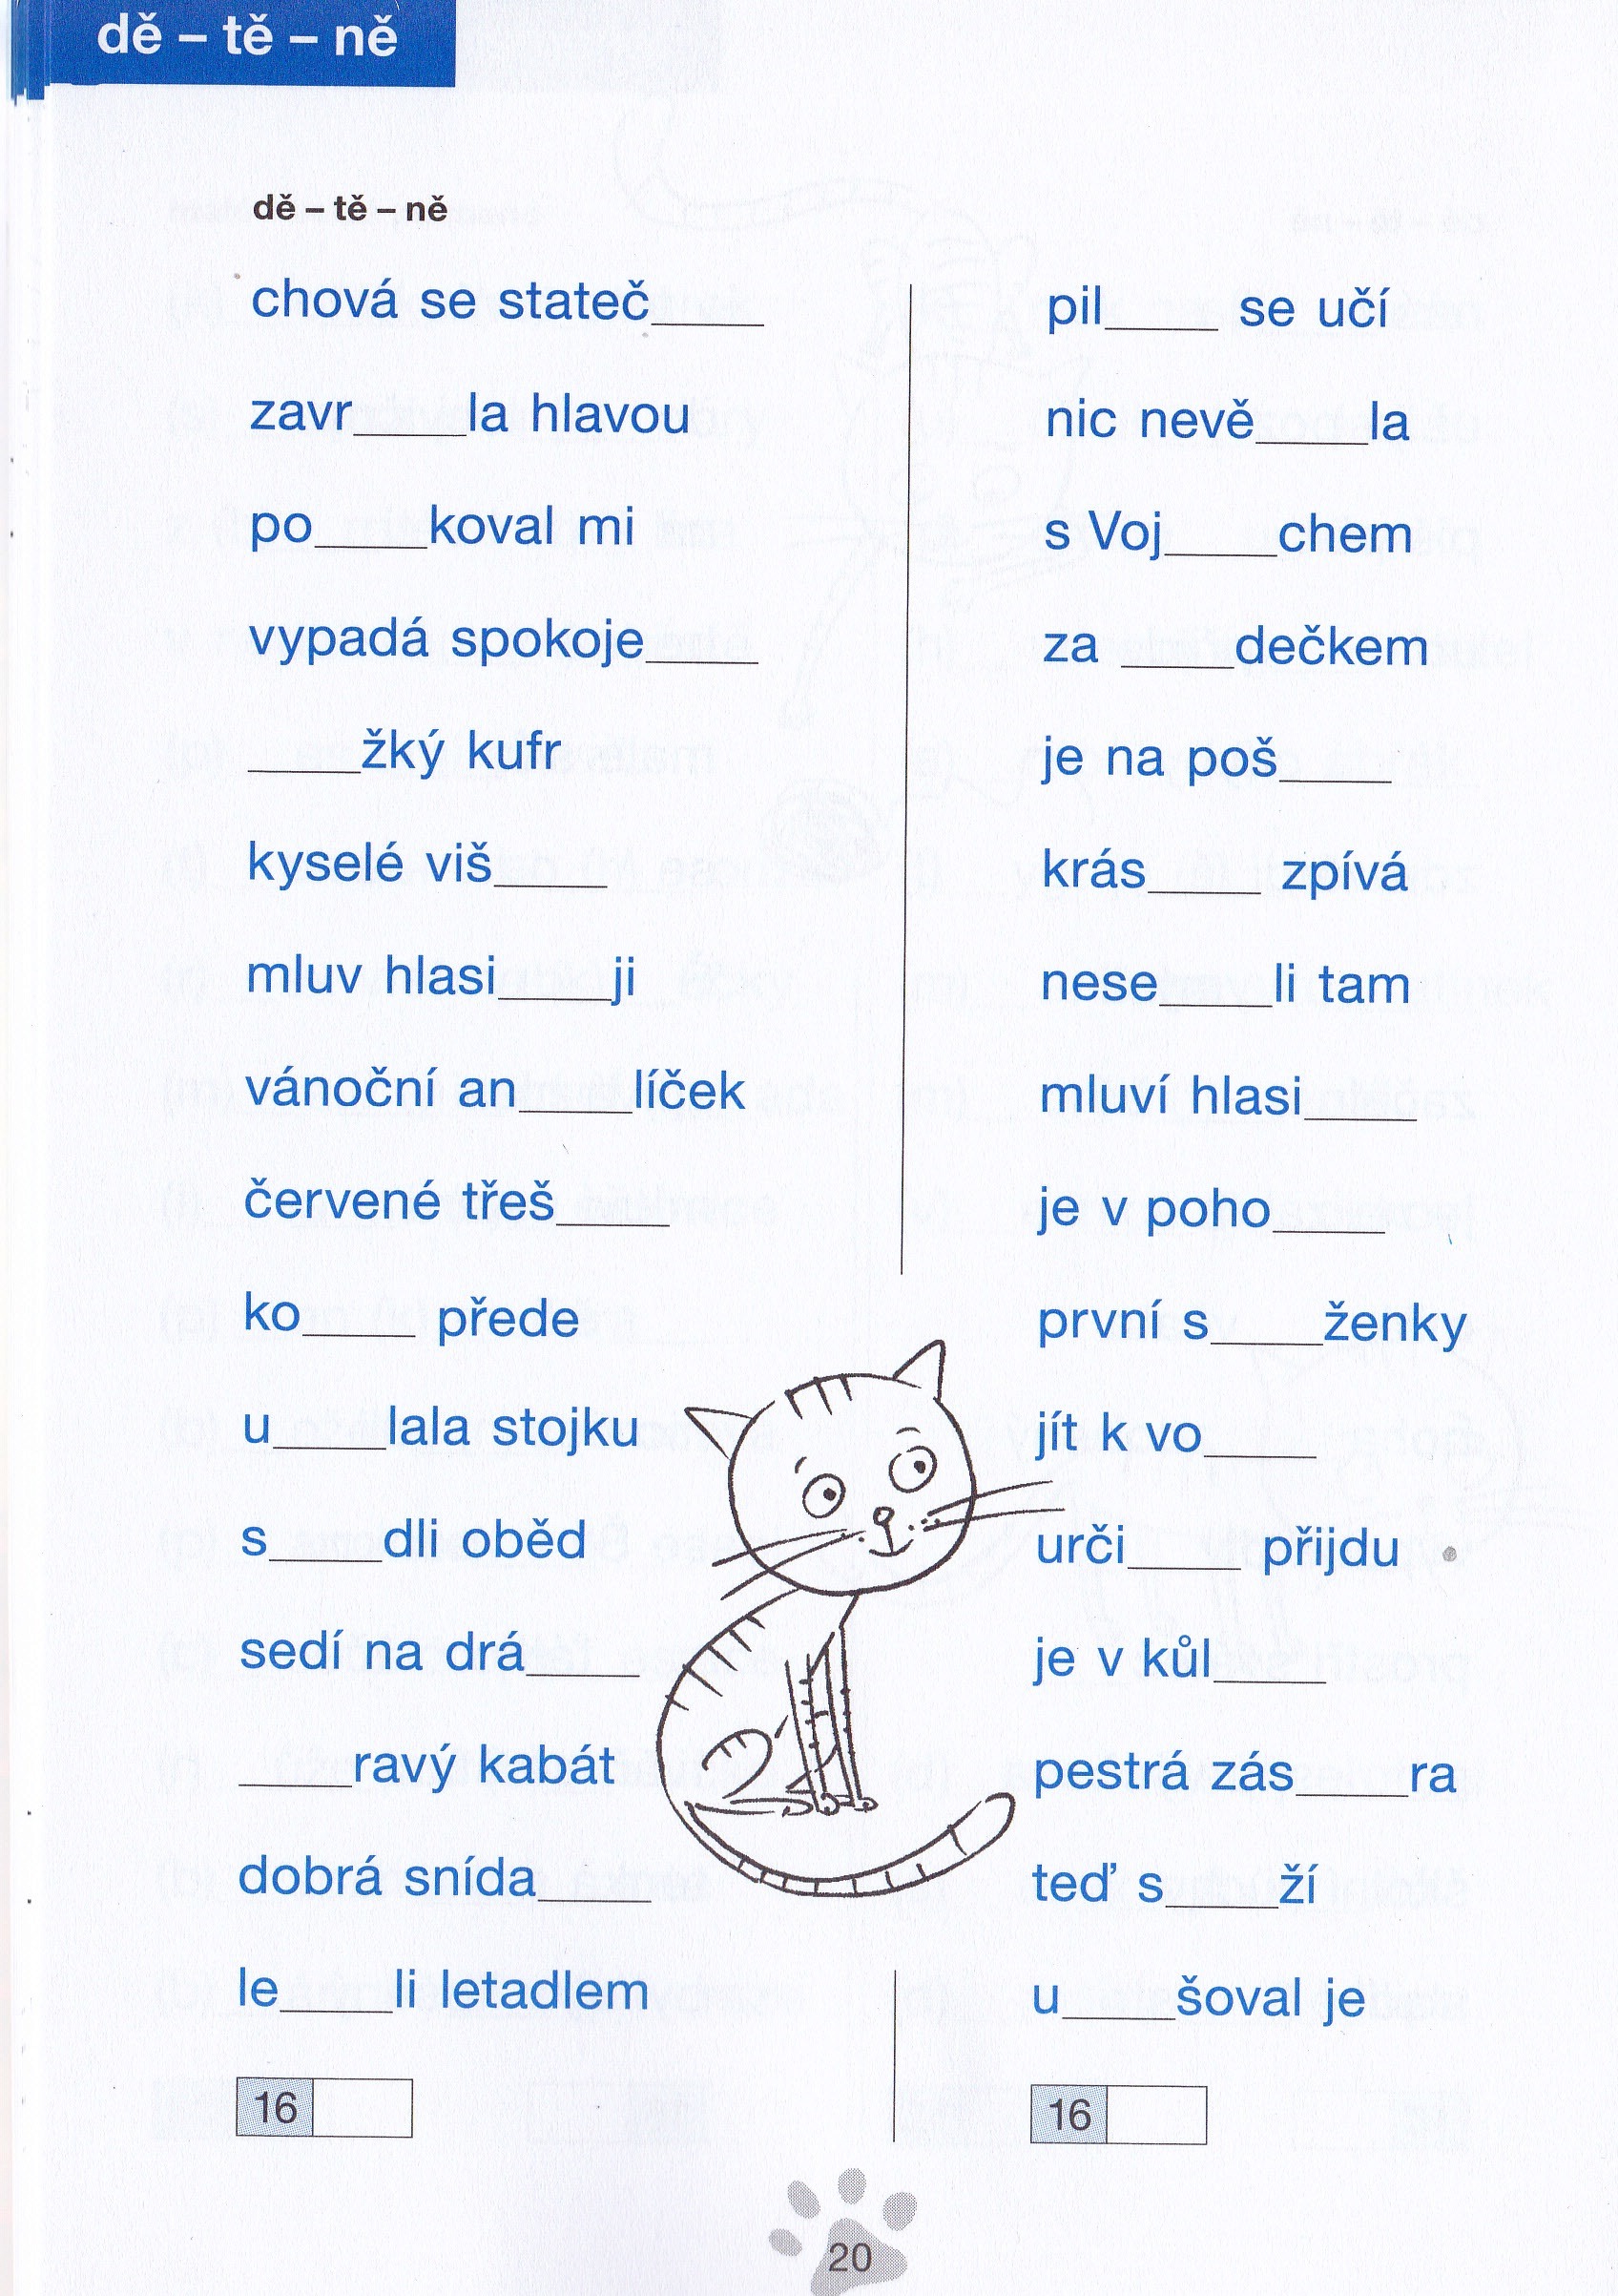 dě – tě – ně
dě – tě – ně
chová se stateč____
zavr____la hlavou
po____koval mi
vypadá spokoje____
____žký kufr
kyselé viš____
mluv hlasi____ji
vánoční an____líček
červené třeš____
ko____ přede
u____lala stojku
s____dli oběd
sedí na drá____
____ravý kabát
dobrá snída____
le____li letadlem
16
pil____ se učí
nic nevě____la
s Voj____chem
za ____dečkem
je na poš____
krás____ zpívá
nese____li tam
mluví hlasi____
je v poho____
první s____ženky
jít k vo____
urči____ přijdu
je v kůl____
pestrá zás____ra
teď s____ží
u____šoval je
16
20